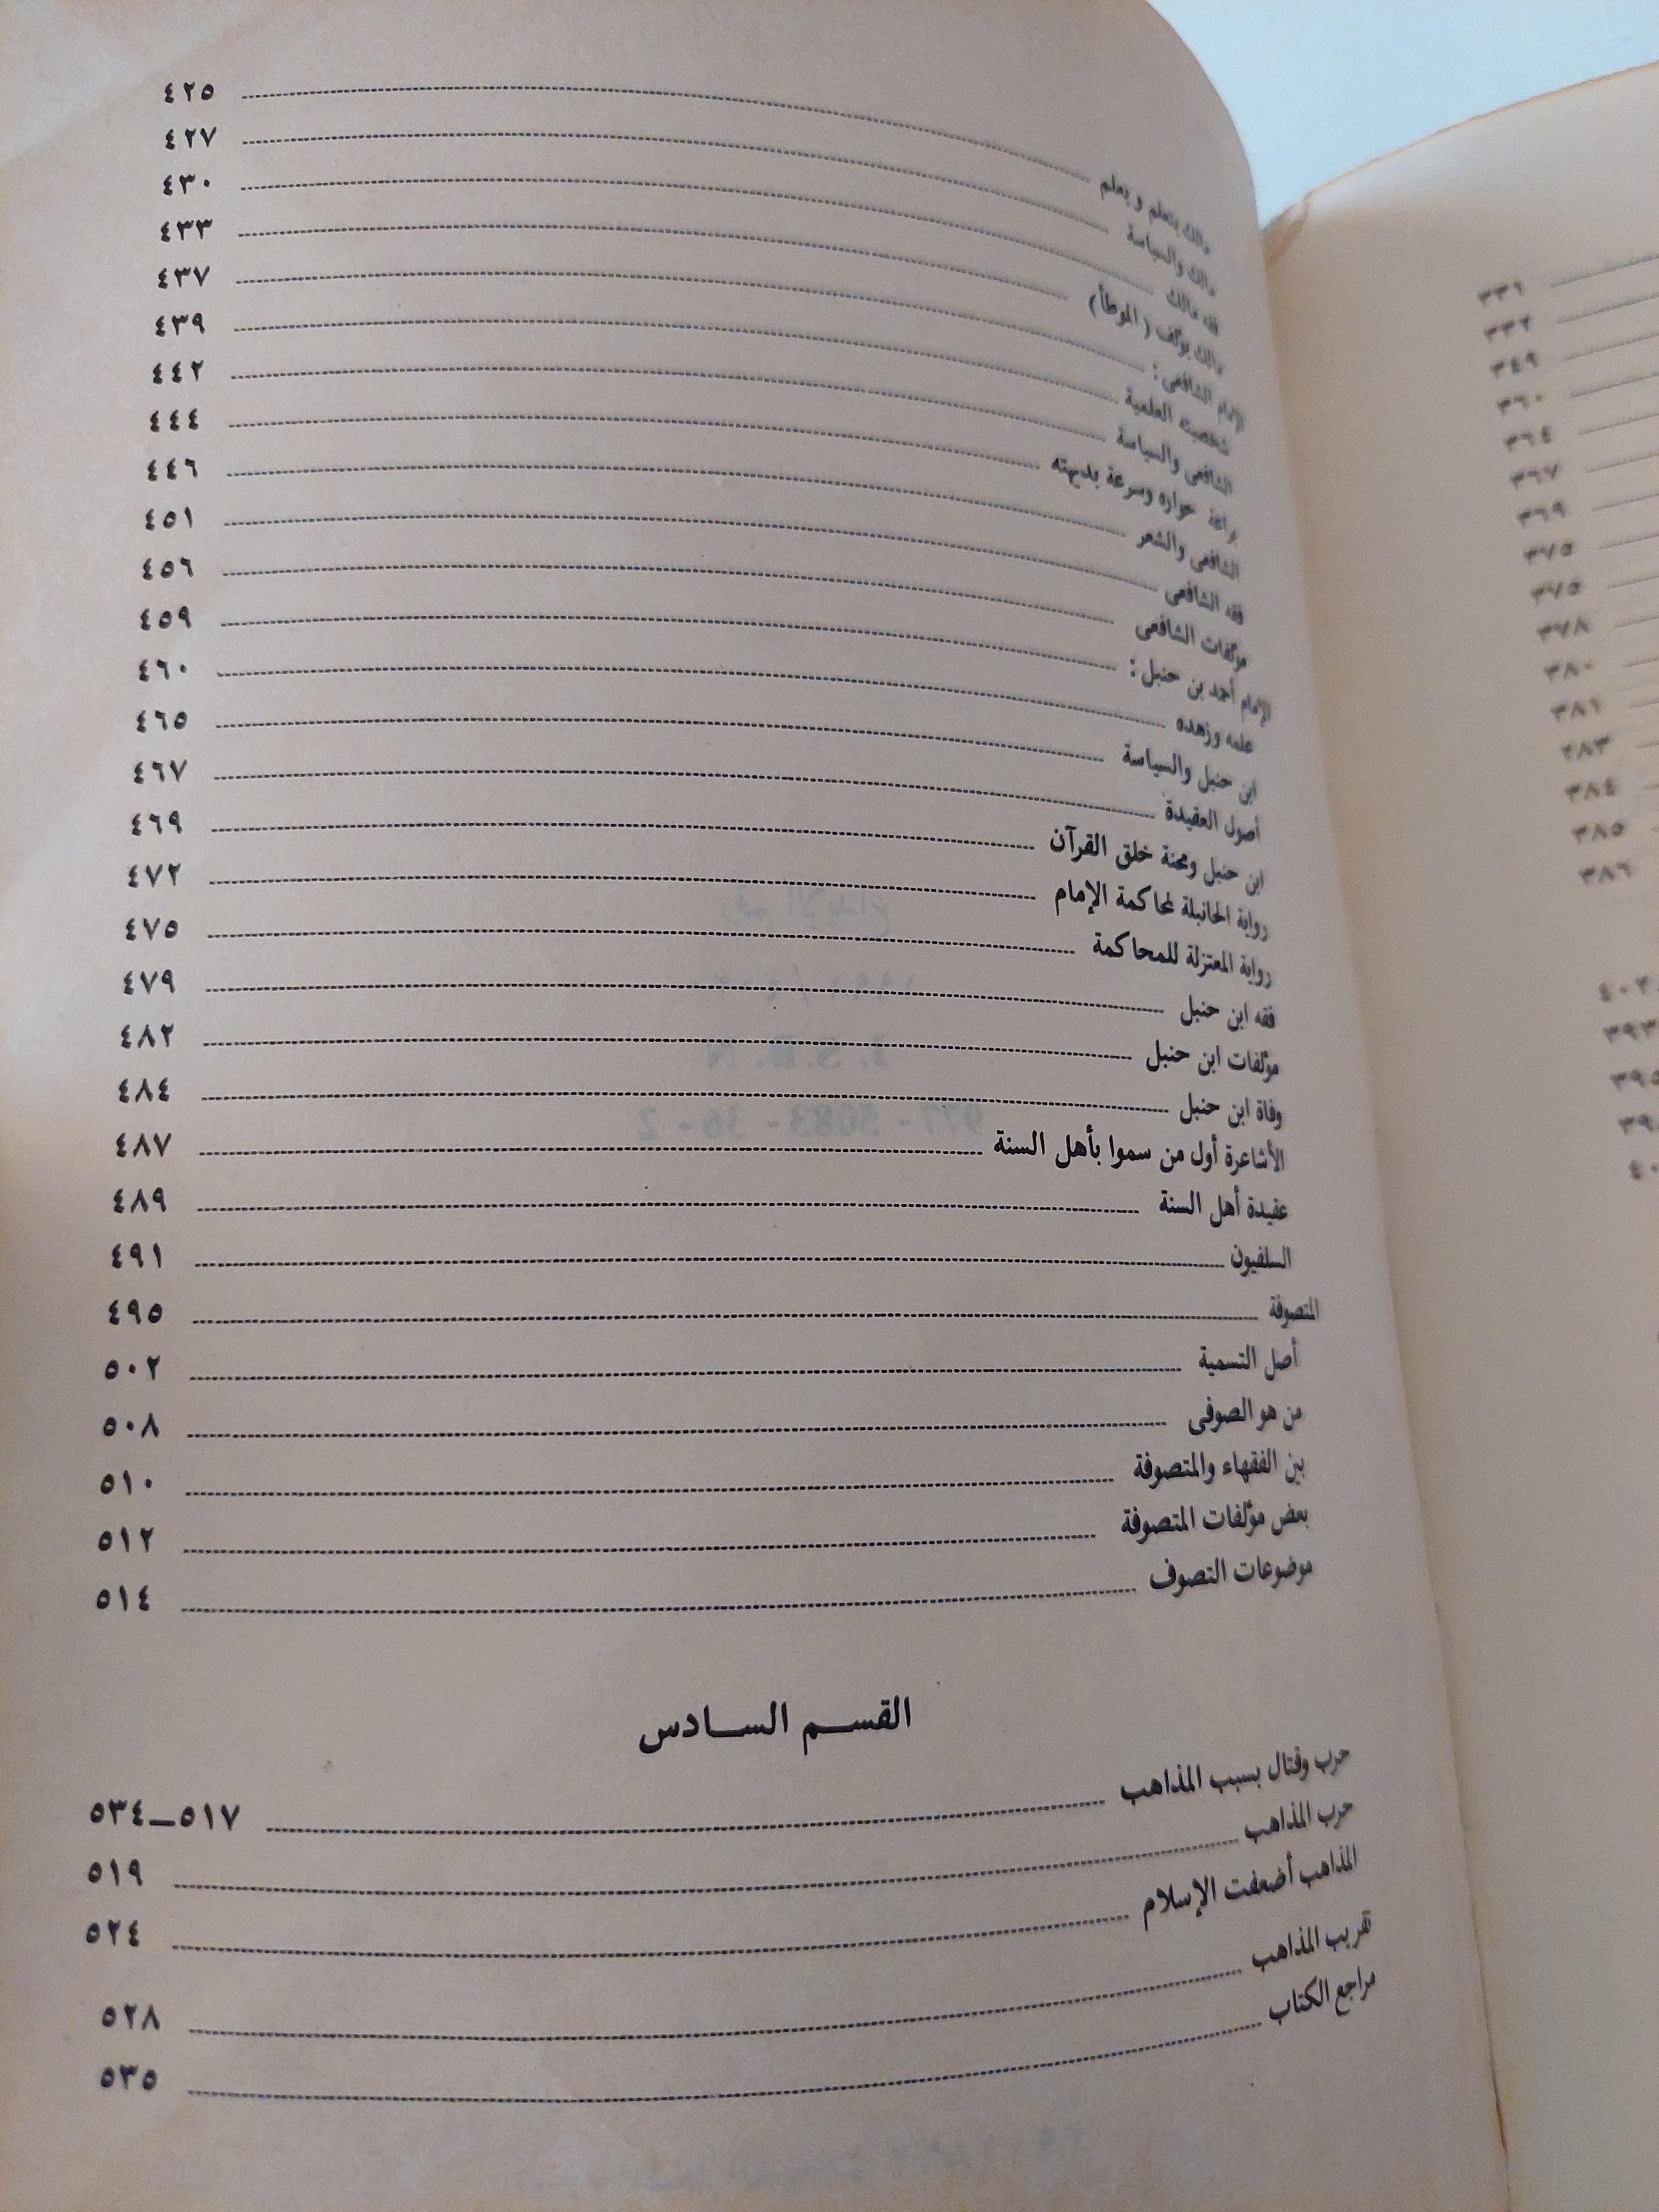 مالك يتعلم ويعلم ٤٢٥
مالك والسياسة ٤٢٧
فقه مالك ٤٣٠
مالك يؤلف (الموطأ) ٤٣٣
الإمام الشافعى : ٤٣٧
شخصيته العلمية ٤٣٩
الشافعى والسياسة ٤٤٢
براعة حواره وسرعة بديهته ٤٤٤
الشافعى والشعر ٤٤٦
فقه الشافعى ٤٥١
مؤلفات الشافعى ٤٥٦
الإمام أحمد بن حنبل : ٤٥٩
علمه وزهده ٤٦٠
ابن حنبل والسياسة ٤٦٥
أصول العقيدة ٤٦٧
ابن حنبل ومحنة خلق القرآن ٤٦٩
رواية الحنابلة لمحاكمة الإمام ٤٧٢
رواية المعتزلة للمحاكمة ٤٧٥
فقه ابن حنبل ٤٧٩
مؤلفات ابن حنبل ٤٨٢
وفاة ابن حنبل ٤٨٤
الأشاعرة أول من سموا بأهل السنة ٤٨٧
عقيدة أهل السنة ٤٨٩
السلفيون ٤٩١
المتصوفة ٤٩٥
أصل التسمية ٥٠٢
من هو الصوفى ٥٠٨
بين الفقهاء والمتصوفة ٥١٠
بعض مؤلفات المتصوفة ٥١٢
موضوعات التصوف ٥١٤
القسم السادس
حرب وقتال بسبب المذاهب ٥١٧ــ٥٣٤
حرب المذاهب ٥١٩
المذاهب أضعفت الإسلام ٥٢٤
تقريب المذاهب ٥٢٨
مراجع الكتاب ٥٣٥
٣٣١
٣٣٢
٣٤٩
٣٦٠
٣٦٤
٣٦٧
٣٦٩
٣٧٥
٣٧٥
٣٧٨
٣٨٠
٣٨١
٣٨٣
٣٨٤
٣٨٥
٣٨٦